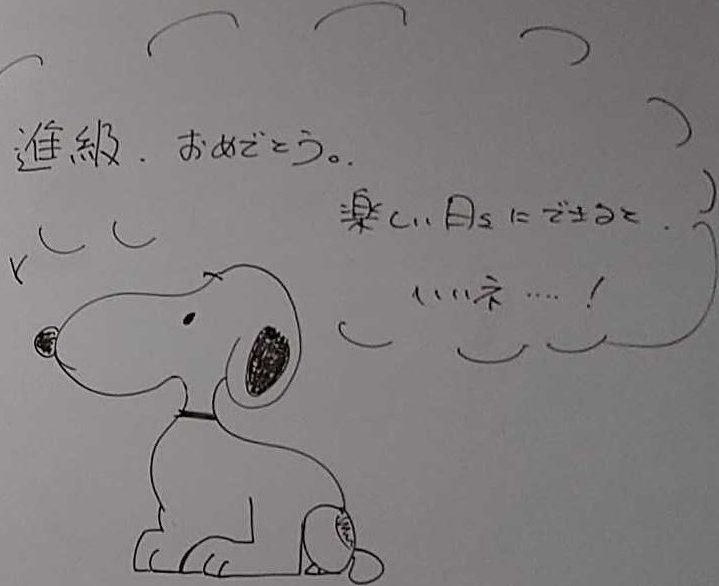 進級. おめでとう。.
楽しい日々にできると.
いいネ....!